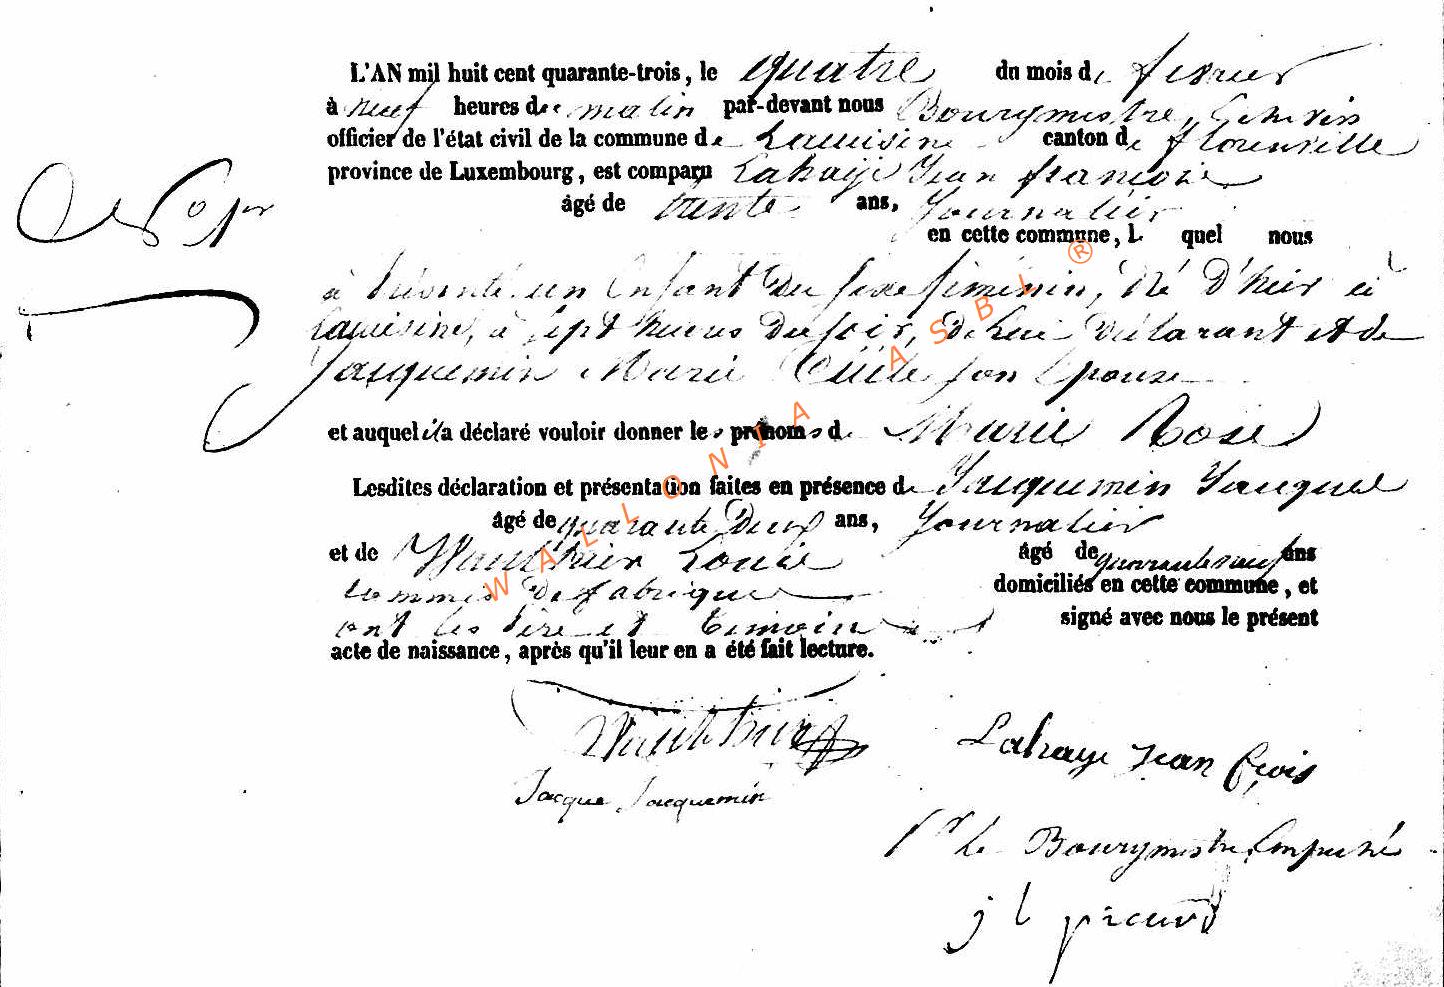 L'AN mil huit cent quarante-trois, le quatre du mois de fevrier
à neuf heures du matin par-devant nous Bourgmestre, Echevin
officier de l'état civil de la commune de Lacuisine canton de florenville
province de Luxembourg, est comparu Lahaije Jean françois
âgé de trente ans, Journalier
en cette commune, L quel nous
à présenté un Enfant du sexe féminin, Né D'hier à
Lacuisine, à sept heures du soir, de Lui Déclarant et de
Jacquemin Marie Cécile son Epouse
et auquel il a déclaré vouloir donner les prénoms de Marie Rose
Lesdites déclaration et présentation faites en présence de Jacquemin Jacques
âgé de quarante Deux ans, Journalier
et de Wauthier Louis âgé de quarante neuf ans
commis De fabrique domiciliés en cette commune, et
ont les Père et Temoin signé avec nous le présent
acte de naissance, après qu'il leur en a été fait lecture.
Wauthier
Lahaye Jean fçois
Jacque Jacquemin
Pr le Bourgmestre Empeché
j l
WALLONIA ASBL ®